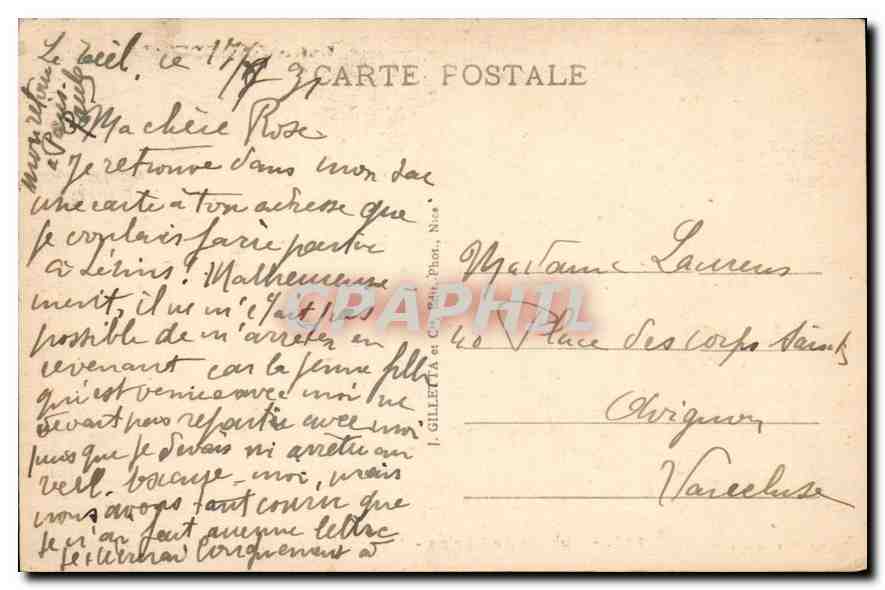 CARTE POSTALE
Le Teil, ce 17
Ma chère Rose
Je retrouve dans mon sac
une carte à ton adresse que
je voulais faire partir
à Lérins! Malheureuse
ment, il ne m'était pas
possible de m'arrêter en
revenant car la jeune fille
qu'est venue avec moi ne
devant pas repartir avec moi
puis que je devais m'arrêter au
Teil. Excuse-moi, mais
nous avons tant couru que
je n'ai fait aucune lettre
Je t'écrirai longuement à
mon retour
à Paris.
J. GILLETTA et Cie, Édit. Phot., Nice
CPAPHIL
Madame Laurens
40 Place des corps Saints
Avignon
Vaucluse